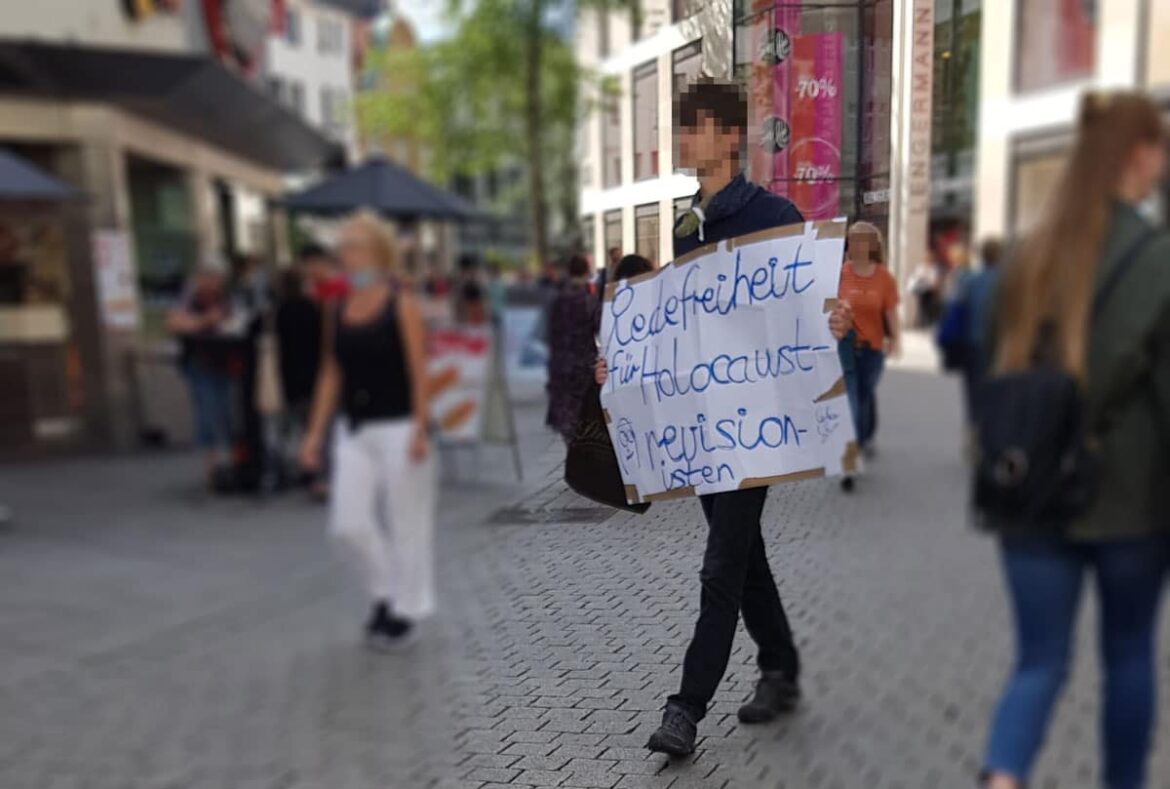 -70%
-70%
LENGERMANN
Redefreiheit
für Holocaust-
revision-
isten